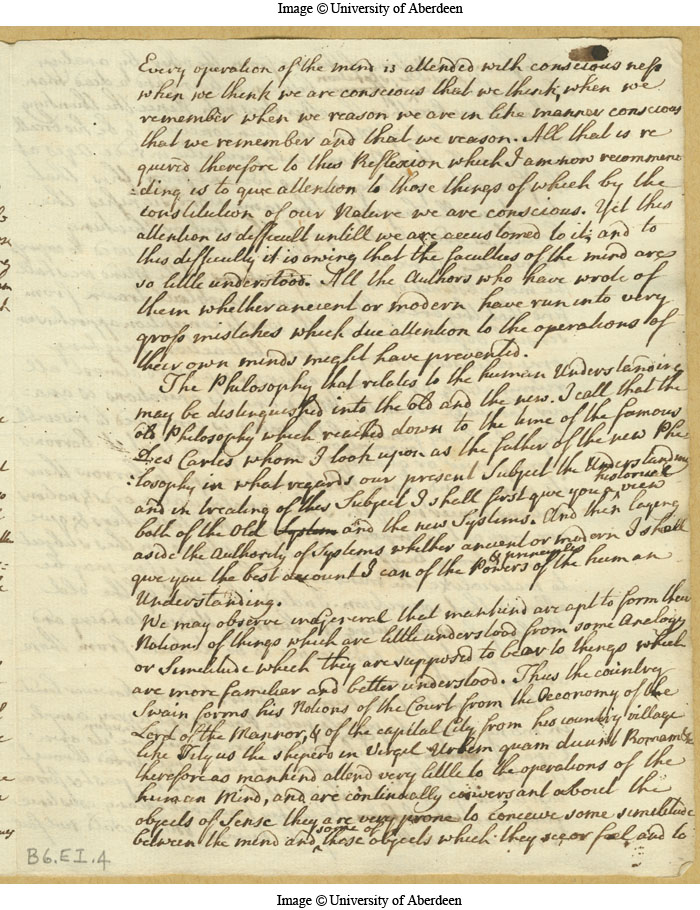 Image © University of Aberdeen
Every operation of the mind is attended with consciousness
when we think we are conscious that we think, when we
remember when we reason we are in like manner conscious
that we remember and that we reason. All that is re
quired therefore to this Reflexion which I am now recommen
:ding is to give attention to those things of which by the
constitution of our Nature we are conscious. Yet this
attention is difficult untill we are accustomed to it, and to
this difficulty it is owing that the faculties of the mind are
so little understood. All the Authors who have wrote of
them whether ancient or modern have run into very
gross mistakes which due attention to the operations of
their own minds might have prevented.
The Philosophy that relates to the human Understanding
may be distinguished into the old and the new. I call that the
old Philosophy which reached down to the time of the famous
Des Cartes whom I look upon as the father of the new Phi
:losophy in what regards our present Subject the Understanding
and in treating of this Subject I shall first give you historical view
both of the Old System and the new Systems. And then laying
aside the Authority of Systems whether ancient or modern I shall
give you the best account I can of the Powers & principles of the human
Understanding.
We may observe in general that mankind are apt to form their
Notions of things which are little understood from some Analogy
or Similitude which they are supposed to bear to things which
are more familiar and better understood. Thus the country
Swain forms his Notions of the Court from the Oeconomy of the
Lord of the Mannor, & of the capital City from his country village
like Tityrus the sheperd in Virgil Urbem quam dicunt Romam &c
therefore as mankind attend very little to the operations of the
human Mind, and are continually conversant about the
objects of Sense they are very prone to conceive some similitude
between the mind and some of those objects which they see or feel and to
B6.EI.4
Image © University of Aberdeen